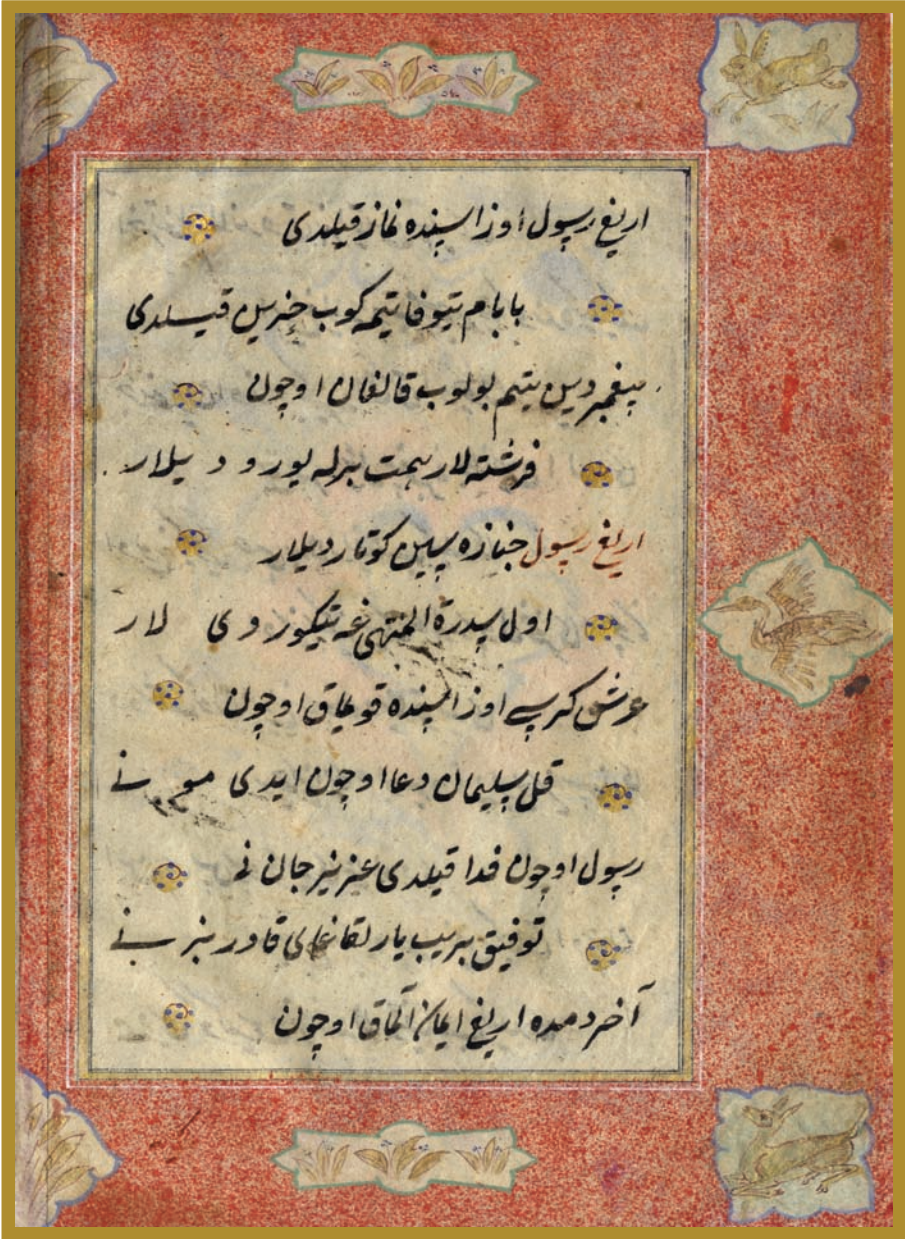 اریغ رسول اوزاسینده نماز قیلدی
بابام تیو فاتیمه کوب حزین قیسلدی
پیغمبردین یتیم بولوب قالغان اوچون
فرشته لار بهمت برله یورودیلار
اریغ رسول جنازه سین کوتاردیلار
اول سدرة المنتهی غه تیکوردی لار
عرش کرسی اوزاسینده قویماق اوچون
قل سلیمان دعا اوچون ایدی مونی
رسول اوچون فدا قیلدی عزیز جان نی
توفیق بیریب یارلقاغای قادر بزنی
آخر دمده اریغ ایمان آلماق اوچون